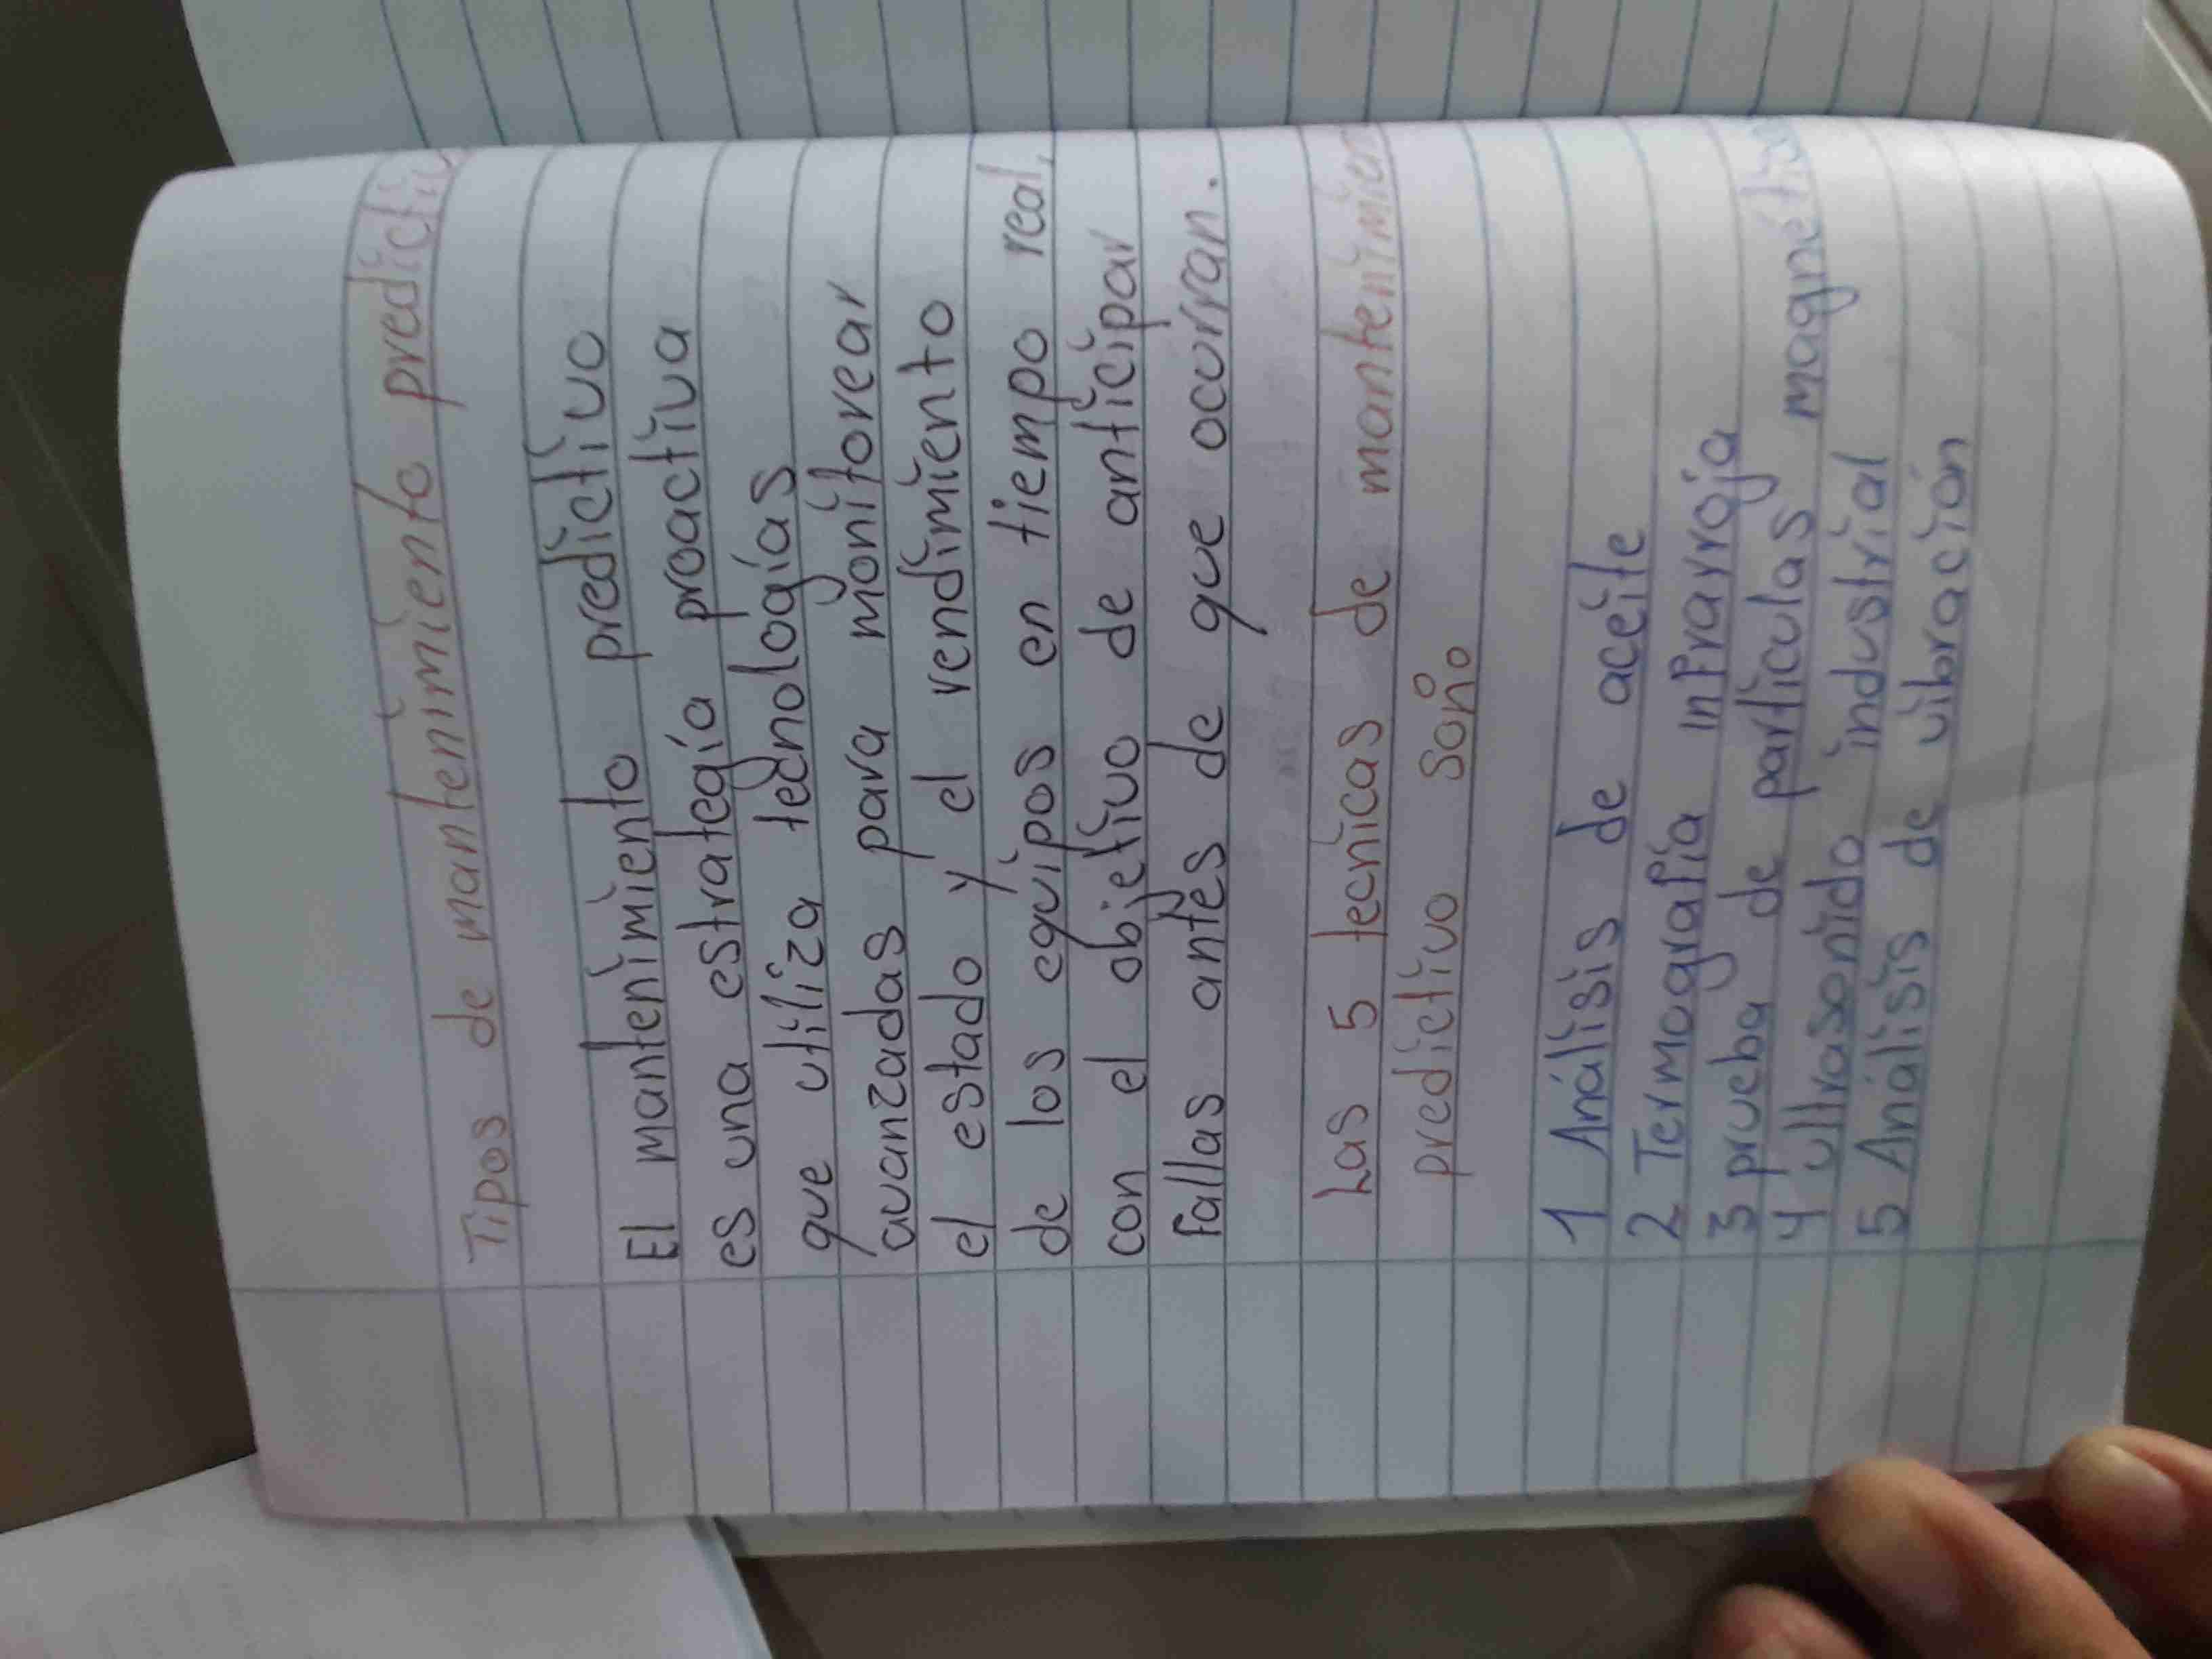 Tipos de mantenimiento predictiv
El mantenimiento predictivo
es una estrategia proactiva
que utiliza tecnologías
avanzadas para monitorear
el estado y el rendimiento
de los equipos en tiempo real,
con el objetivo de anticipar
fallas antes de que ocurran.
Las 5 tecnicas de mantenimien
predictivo soño
1 Análisis de aceite
2 Termografía infrarroja
3 prueba de particulas magnétiv
4 ultrasonido industrial
5 Análisis de vibración